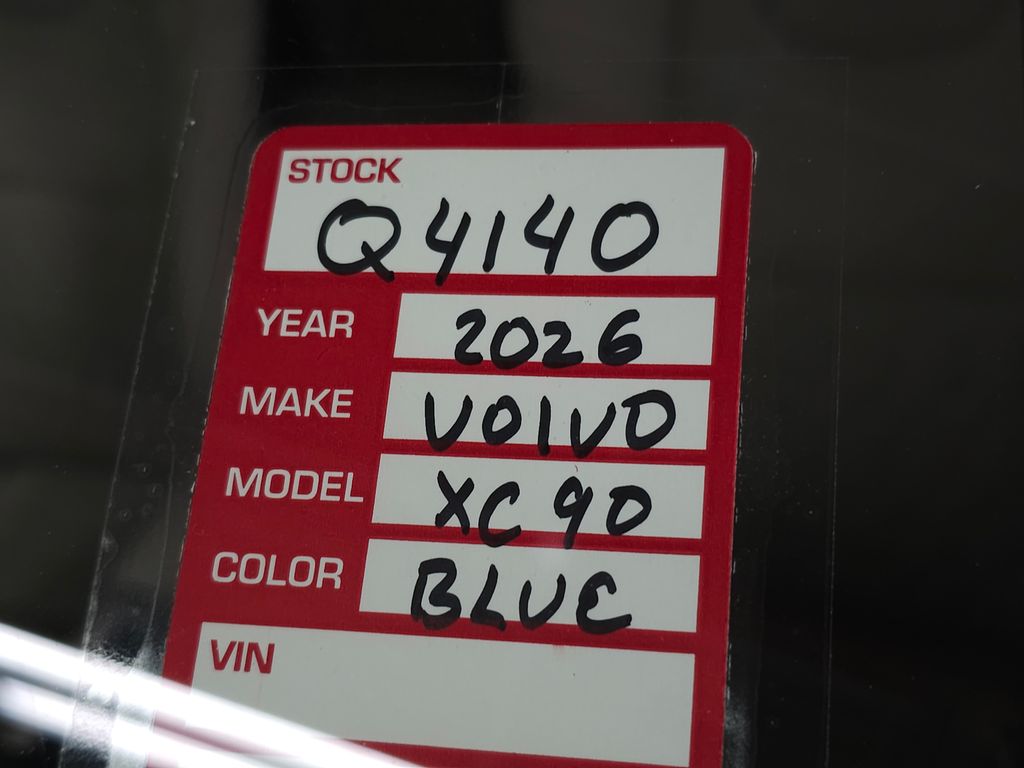 STOCK
Q4140
YEAR 2026
MAKE VOlVO
MODEL XC90
COLOR BLUE
VIN